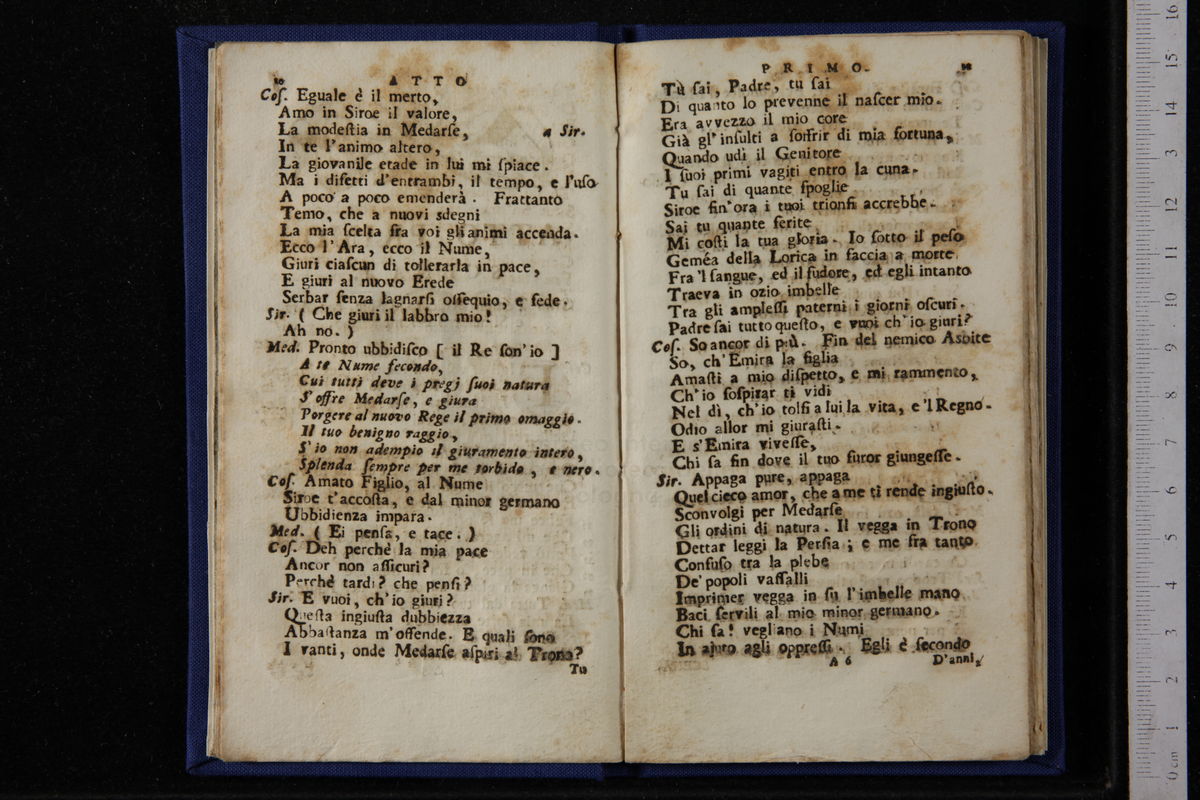 10 ATTO
Coſ. Eguale è il merto,
Amo in Siroe il valore,
La modeſtia in Medarſe, a Sir.
In te l'animo altero,
La giovanile etade in lui mi ſpiace.
Ma i difetti d'entrambi, il tempo, e l'uſo
A poco a poco emenderà. Frattanto
Temo, che a nuovi sdegni
La mia ſcelta fra voi gli animi accenda.
Ecco l'Ara, ecco il Nume,
Giuri ciaſcun di tollerarla in pace,
E giuri al nuovo Erede
Serbar ſenza lagnarſi oſſequio, e fede.
Sir. ( Che giuri il labbro mio!
Ah no. )
Med. Pronto ubbidiſco [ il Re ſon'io ]
A te Nume fecondo,
Cui tutti deve i pregj ſuoi natura
S'offre Medarſe, e giura
Porgere al nuovo Rege il primo omaggio.
Il tuo benigno raggio,
S'io non adempio il giuramento intero,
Splenda ſempre per me torbido, e nero.
Coſ. Amato Figlio, al Nume
Siroe t'accoſta, e dal minor germano
Ubbidienza impara.
Med. ( Ei penſa, e tace. )
Coſ. Deh perchè la mia pace
Ancor non aſſicuri?
Perchè tardi? che penſi?
Sir. E vuoi, ch'io giuri?
Queſta ingiuſta dubbiezza
Abbaſtanza m'offende. E quali ſono
I vanti, onde Medarſe aſpiri al Trono?
Tu
PRIMO.
Tù ſai, Padre, tu ſai
Di quanto lo prevenne il naſcer mio.
Era avvezzo il mio core
Già gl'inſulti a ſoffrir di mia fortuna,
Quando udì il Genitore
I ſuoi primi vagiti entro la cuna.
Tu ſai di quante ſpoglie
Siroe fin'ora i tuoi trionfi accrebbe.
Sai tu quante ferite
Mi coſti la tua gloria. Io ſotto il peſo
Geméa della Lorica in faccia a morte
Fra 'l ſangue, ed il ſudore, ed egli intanto
Traeva in ozio imbelle
Tra gli ampleſſi paterni i giorni oſcuri.
Padre ſai tutto queſto, e vuoi ch'io giuri?
Coſ. So ancor di più. Fin del nemico Asbite
So, ch'Emira la figlia
Amaſti a mio diſpetto, e mi rammento,
Ch'io ſoſpirar ti vidi
Nel dì, ch'io tolſi a lui la vita, e 'l Regno.
Odio allor mi giuraſti.
E s'Emira viveſſe,
Chi ſa fin dove il tuo furor giungeſſe.
Sir. Appaga pure, appaga
Quel cieco amor, che a me ti rende ingiuſto.
Sconvolgi per Medarſe
Gli ordini di natura. Il vegga in Trono
Dettar leggi la Perſia; e me fra tanto
Confuſo tra la plebe
De' popoli vaſſalli
Imprimer vegga in ſu l'imbelle mano
Baci ſervili al mio minor germano.
Chi ſa! vegliano i Numi
In ajuto agli oppreſſi. Egli è ſecondo
A 6 D'anni,